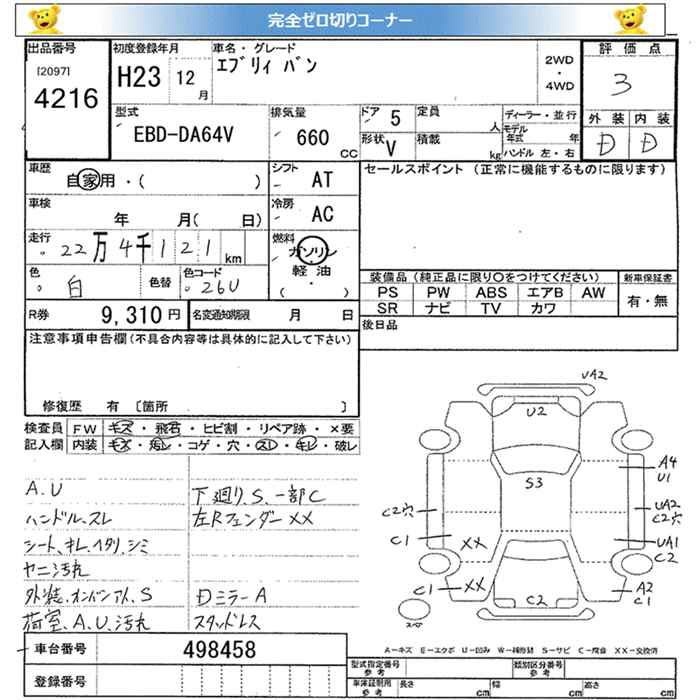 完全ゼロ切りコーナー
出品番号 初度登録年月 車名・グレード 評価点
[2097] H23 12月 エブリィ バン 2WD・4WD 3
4216
型式 排気量 ドア 5 定員 人 ディーラー・並行 外装 内装
EBD-DA64V 660 CC 形状 V 積載 kg モデル年式 年 D D
ハンドル 左・右
車歴 シフト セールスポイント (正常に機能するものに限ります)
自家用・( ) AT
車検 冷房
年 月( 日) AC
走行 燃料
22万4千121km ガソリン
軽油
・
( )
色 白 色替 色コード 26U
装備品 (純正品に限り○をつけてください) 新車保証書
PS PW ABS エアB AW 有・無
SR ナビ TV カワ
R券 9,310円 名変通知期限 月 日 後日品
注意事項申告欄(不具合内容等は具体的に記入して下さい)
修復歴 有 〔箇所 〕
検査員 FW キズ・飛石・ヒビ割・リペア跡・×要
記入欄 内装 キズ・汚レ・コゲ・穴・スレ・キレ・破レ
A.U 下廻り、S、一部C
ハンドル、スレ 左Rフェンダー XX
シート、キレ、ヘタリ、シミ
ヤニ汚れ
外装、オンパンアト、S Dミラー A
荷室、A.U、汚れ スタッドレス
UA2
U2
S3
A4
U1
C2穴
UA2
C2穴
C1
XX
UA1
C2
C1
XX
C2
A2
C1
スペア
A-キズ E-エクボ U-凹み W-補修跡 S-サビ C-腐食 XX-交換済
車台番号 498458
登録番号
型式指定番号 参考 類別区分番号 参考
車庫証明用 参考 長さ cm 幅 cm 高さ cm